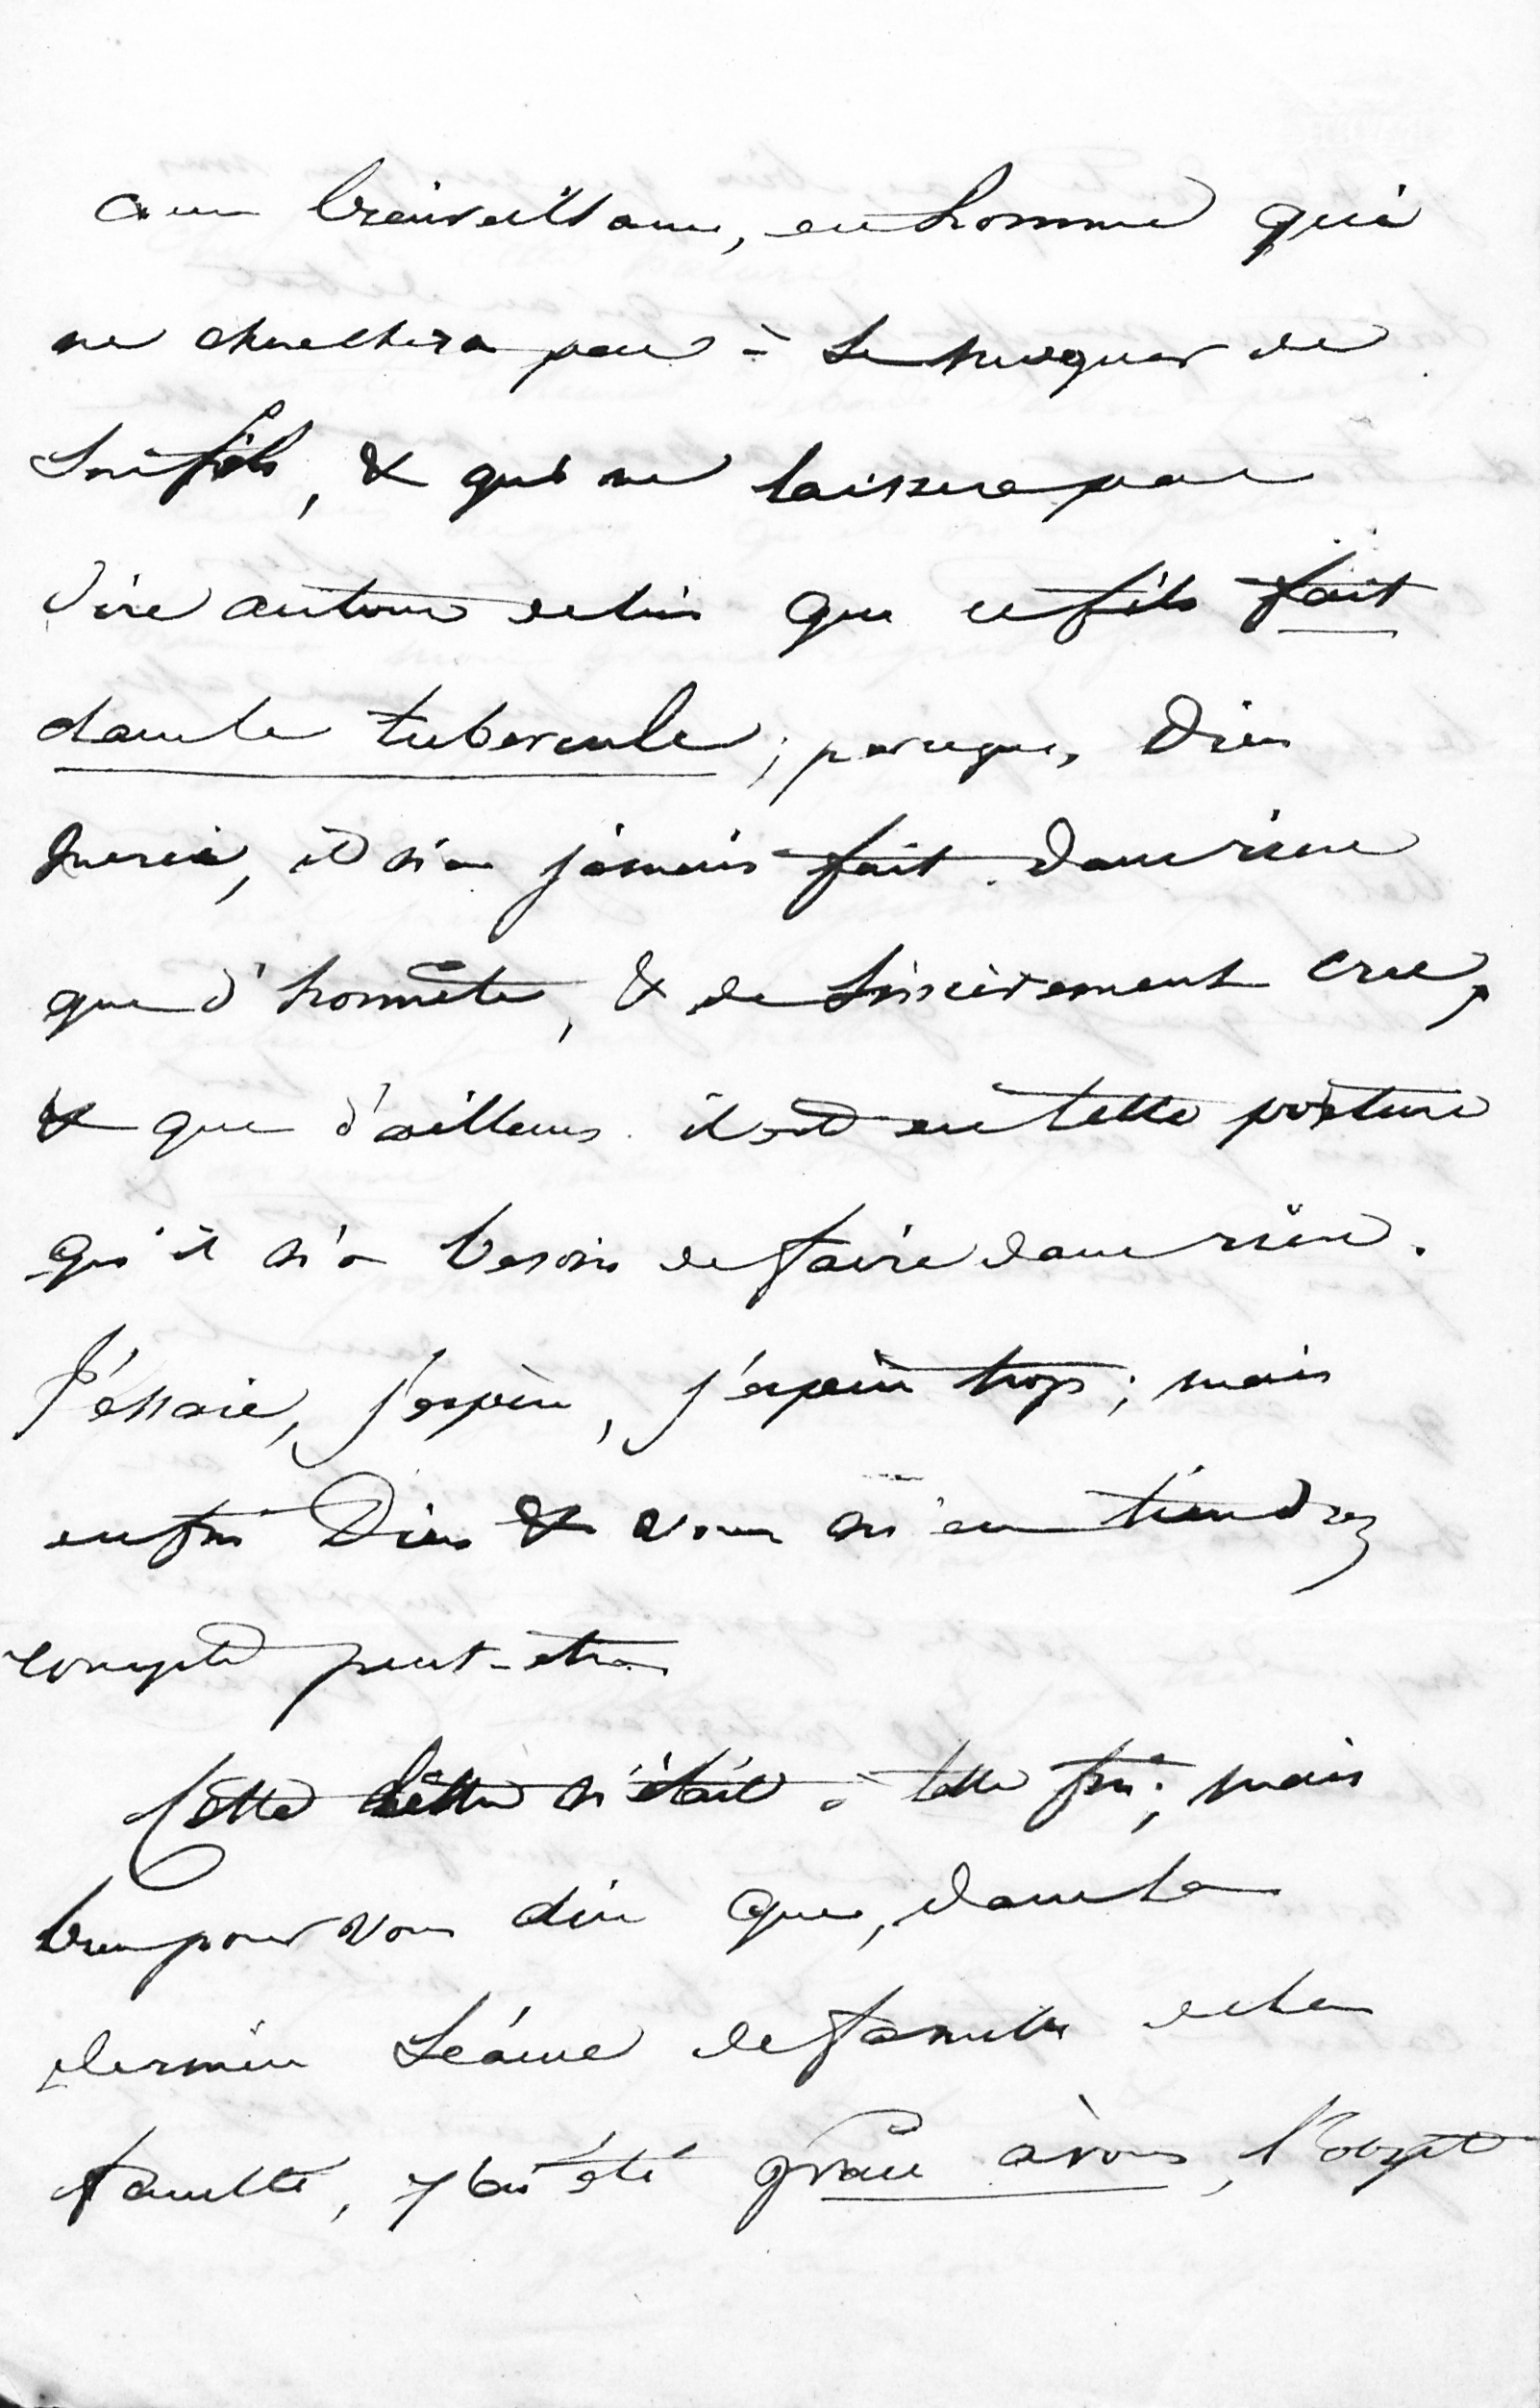 avec bienveillance, en homme qui
ne cherchera pas à se moquer de
son fils, & qui ne laissera pas
dire autour de lui que ce fils fait
dans le tubercule ; parceque, Dieu
merci, il n'a jamais fait dans rien
que d'honnête, & de sincèrement cru,
& que d'ailleurs il est en telle posture
qu'il n'a besoin de faire dans rien.
J'essaie, j'espère, j'espère trop ; mais
enfin Dieu & vous m'en tiendrez
compte peut-être
Cette lettre n'était à telle fin ; mais
bien pour vous dire que, dans la
dernière séance de famille de la
faculté, j'ai été grâce à vous, l'objet